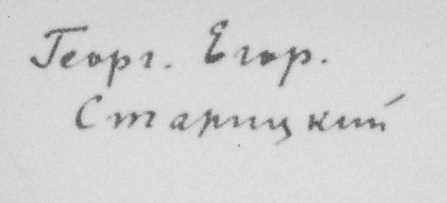 Георг. Егор.
Старицкий